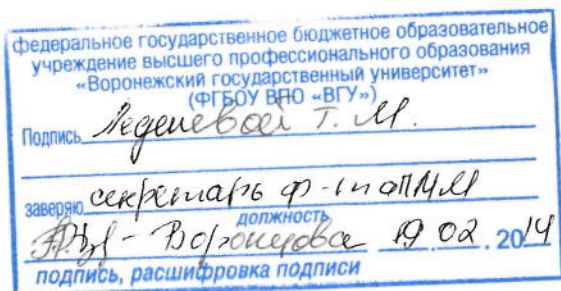 Федеральное государственное бюджетное образовательное
учреждение высшего профессионального образования
«Воронежский государственный университет»
(ФГБОУ ВПО «ВГУ»)
Подпись Леденевой Т. М.
заверяю секретарь ф-та ПММ
должность
Воронцова 19.02.2014
подпись, расшифровка подписи